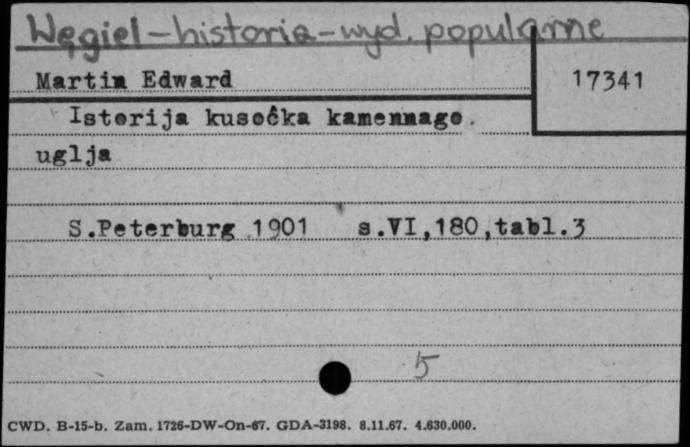 Węgiel - historia - wyd. popularne
Martin Edward
17341
Istorija kusočka kamennago.
uglja
S.Peterburg 1901 s.VI,180,tabl.3
5
CWD. B-15-b. Zam. 1726-DW-On-67. GDA-3198. 8.11.67. 4.630.000.